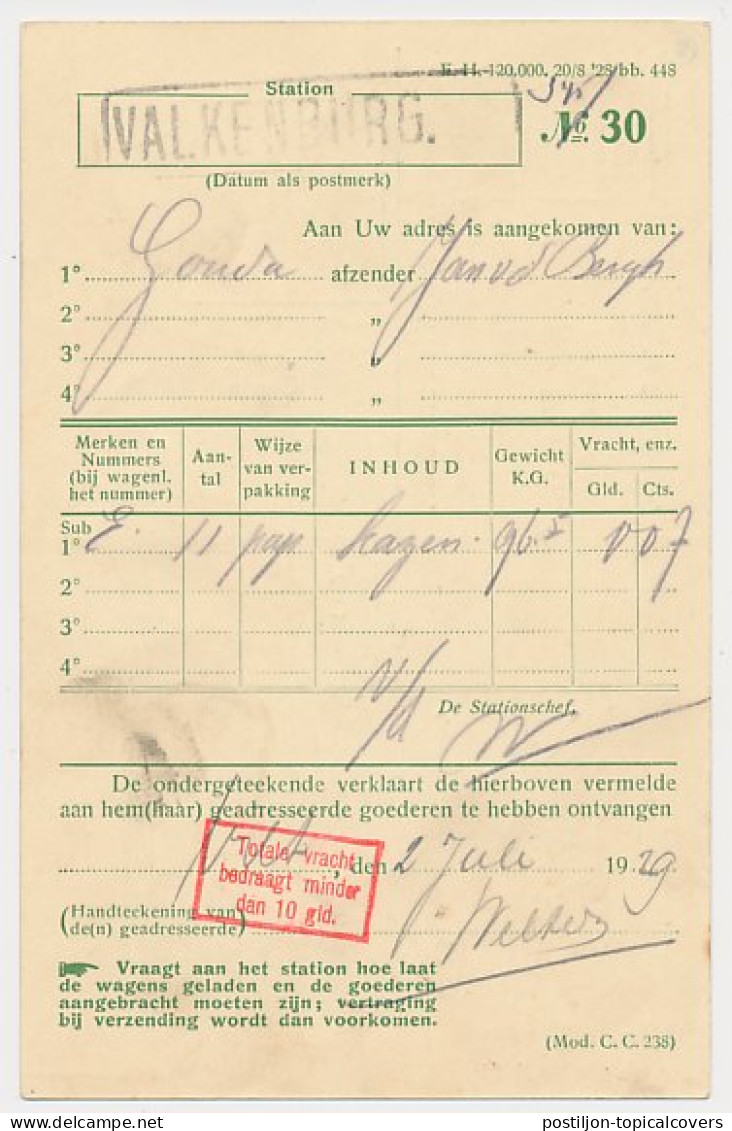 E. 14.-120.000. 20/8 '28/bb. 448
Station
VALKENBURG.
№. 30
(Datum als postmerk)
Aan Uw adres is aangekomen van:
1° Gouda afzender Jan vd Bergh
2° „
3° „
4° „
Merken en Nummers (bij wagenl. het nummer)
Aan-tal
Wijze van ver-pakking
INHOUD
Gewicht K.G.
Vracht, enz.
Gld. Cts.
Sub
1° E. 11 pap. 96.5 0 07
2°
3°
4°
De Stationschef,
De ondergeteekende verklaart de hierboven vermelde
aan hem(haar) geadresseerde goederen te hebben ontvangen
, den 2 Juli 1929
Totale vracht
bedraagt minder
dan 10 gld.
(Handteekening van
de(n) geadresseerde)
Welters
Vraagt aan het station hoe laat
de wagens geladen en de goederen
aangebracht moeten zijn; vertraging
bij verzending wordt dan voorkomen.
(Mod. C. C. 238)
delcampe.net
postiljon-topicalcovers